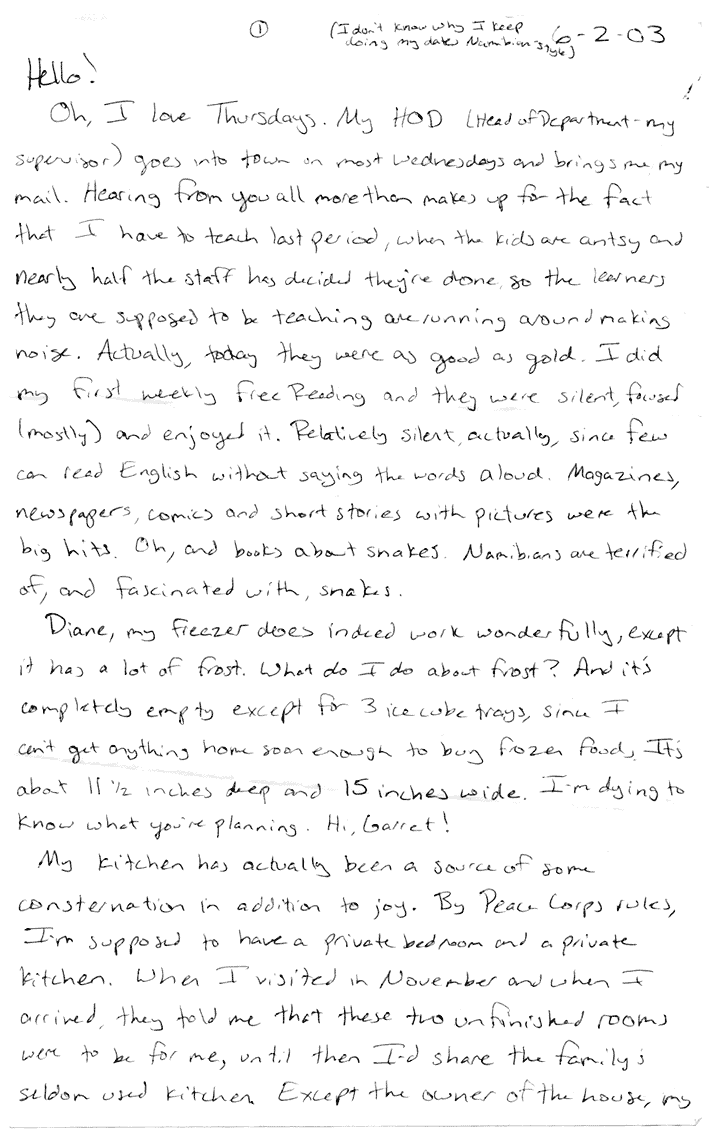 ①
(I don't know why I keep
doing my dates Namibian style)
6-2-03
Hello!
Oh, I love Thursdays. My HOD (Head of Department - my
supervisor) goes into town on most Wednesdays and brings me my
mail. Hearing from you all more than makes up for the fact
that I have to teach last period, when the kids are antsy and
nearly half the staff has decided they're done, so the learners
they are supposed to be teaching are running around making
noise. Actually, today they were as good as gold. I did
my first weekly Free Reading and they were silent, focused
(mostly) and enjoyed it. Relatively silent, actually, since few
can read English without saying the words aloud. Magazines,
newspapers, comics and short stories with pictures were the
big hits. Oh, and books about snakes. Namibians are terrified
of, and fascinated with, snakes.
Diane, my freezer does indeed work wonderfully, except
it has a lot of frost. What do I do about frost? And it's
completely empty except for 3 ice cube trays, since I
can't get anything home soon enough to buy frozen foods. It's
about 11 1/2 inches deep and 15 inches wide. I'm dying to
know what you're planning. Hi, Garret!
My kitchen has actually been a source of some
consternation in addition to joy. By Peace Corps rules,
I'm supposed to have a private bedroom and a private
kitchen. When I visited in November and when I
arrived, they told me that these two unfinished rooms
were to be for me, until then I'd share the family's
seldom used kitchen. Except the owner of the house, my